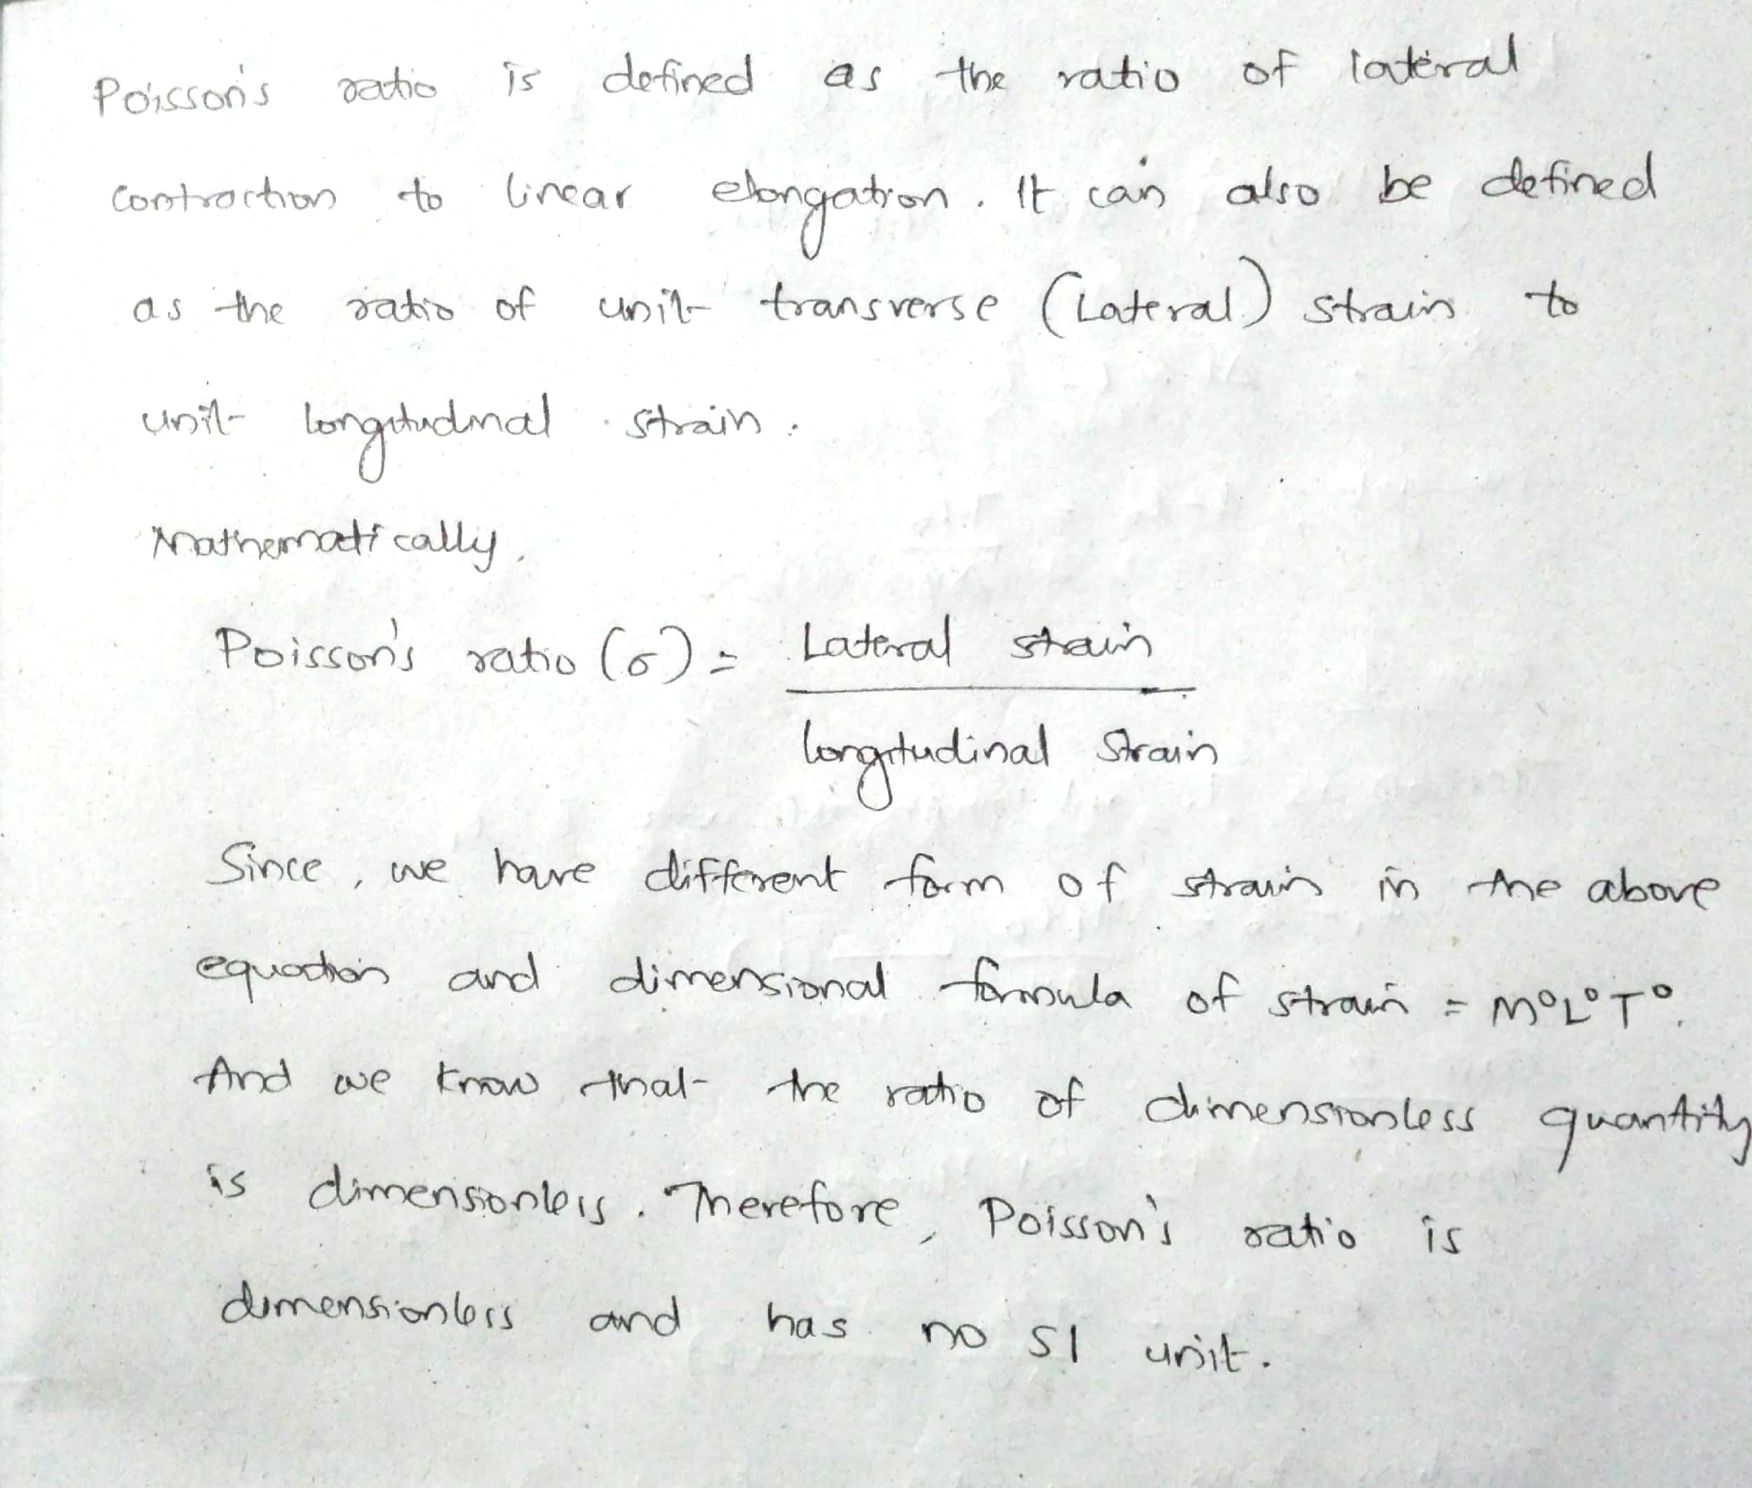 Poisson's ratio is defined as the ratio of lateral
contraction to linear elongation. It can also be defined
as the ratio of unit transverse (Lateral) strain to
unit longitudinal strain.
Mathematically,
Poisson's ratio (σ) = Lateral strain
longitudinal strain
Since, we have different form of strain in the above
equation and dimensional formula of strain = M⁰L⁰T⁰.
And we know that the ratio of dimensionless quantity
is dimensionless. Therefore, Poisson's ratio is
dimensionless and has no SI unit.